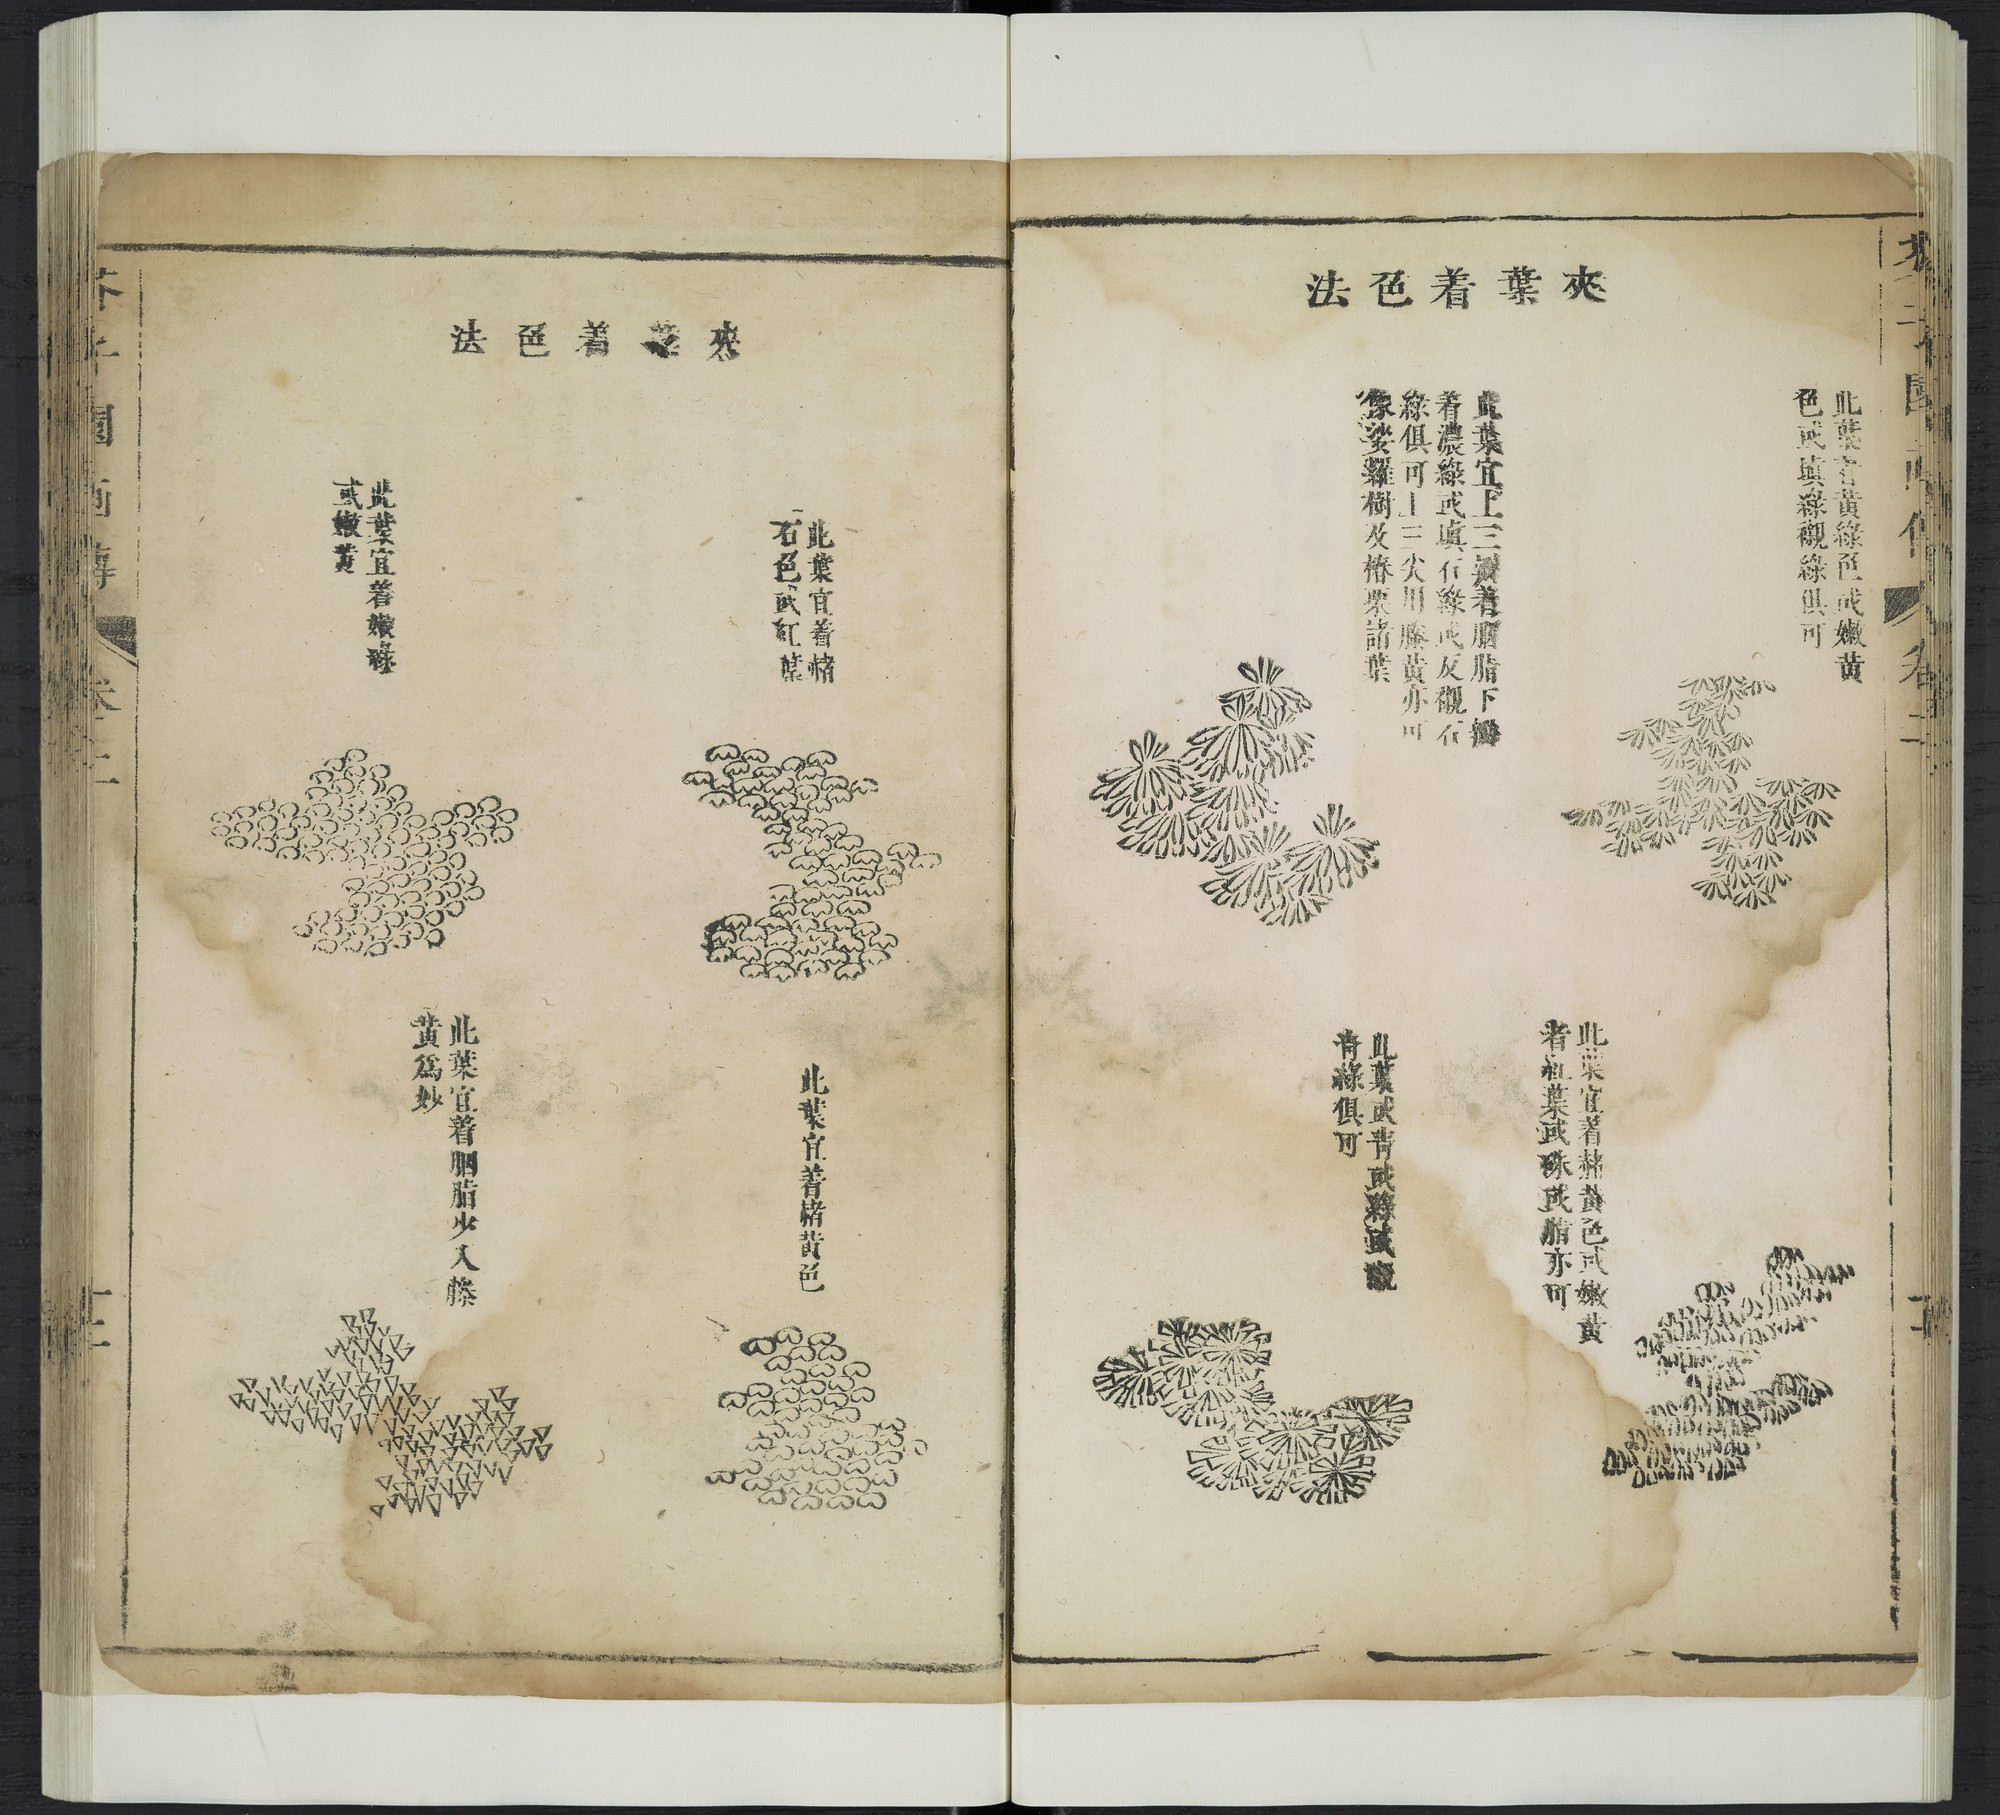 夾葉着色法
此葉宜黄綠色或嫩黄
色或填綠襯綠俱可
此葉宜上三瓣着胭脂下瓣
着濃綠或填石綠或反襯石
綠俱可上三尖用籐黄亦可
像娑羅樹及椿栗諸葉
此葉宜着赭黄色或嫩黄
者紅葉或硃或脂亦可
此葉或青或綠或襯
青綠俱可
夾葉着色法
此葉宜着赭
石色或紅葉
此葉宜着嫩綠
或嫩黄
此葉宜着赭黄色
此葉宜着胭脂少入籐
黄爲妙
芥子園畫傳
卷二